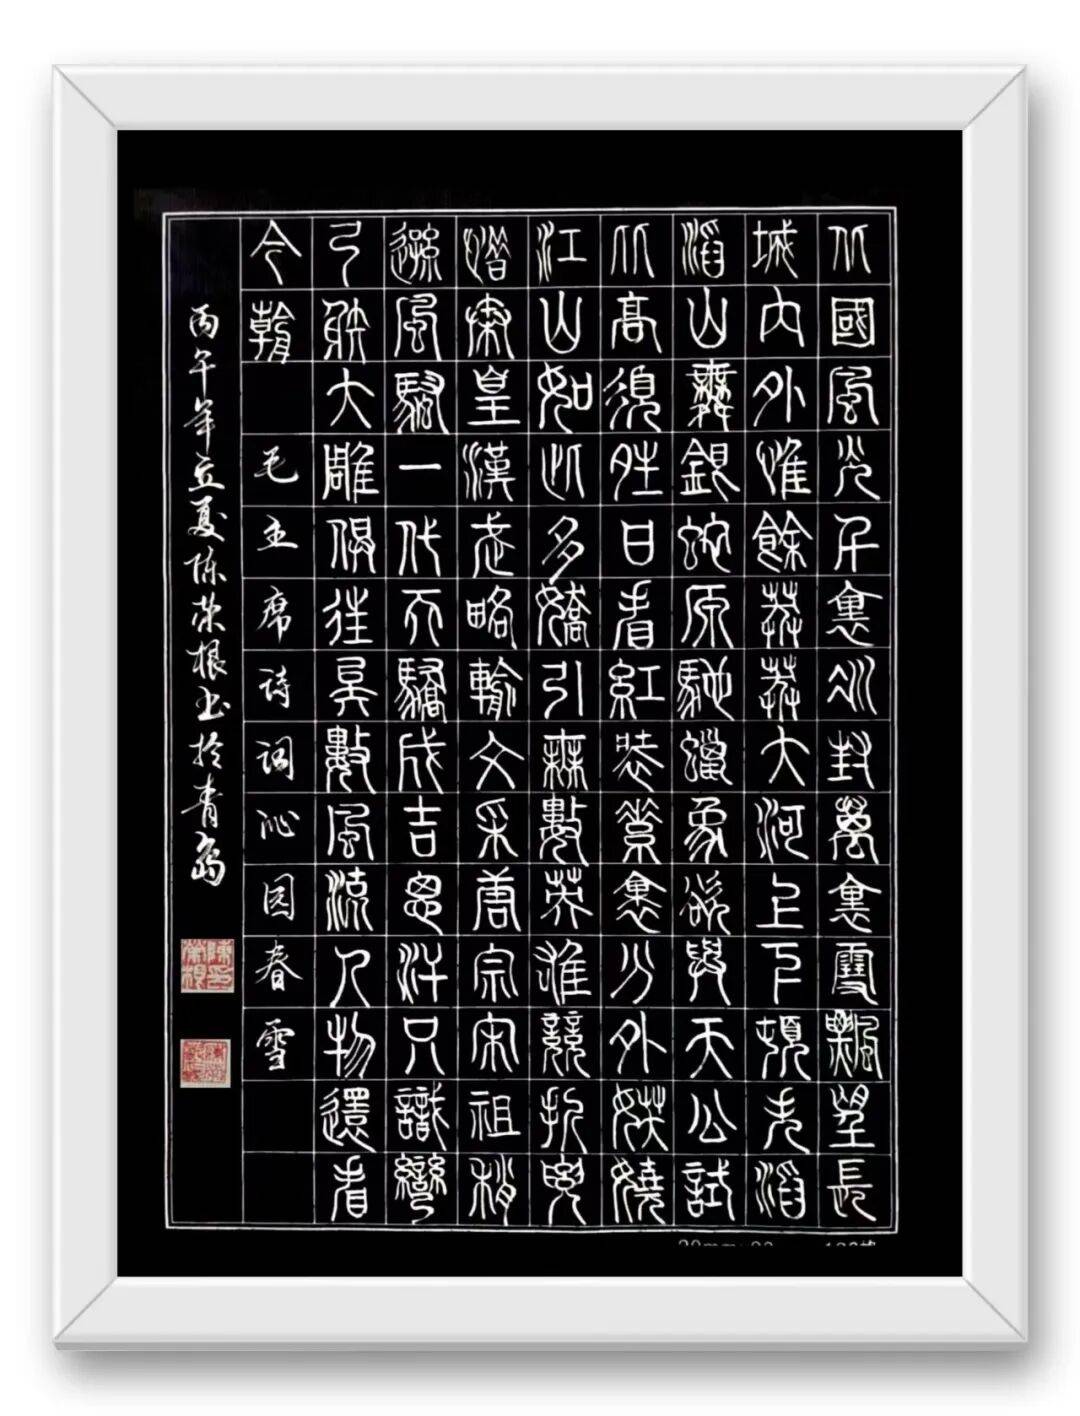 北國風光千裏冰封萬裏雪飄望長
城内外惟餘莽莽大河上下頓失滔
滔山舞銀蛇原馳蠟象欲與天公試
比高須晴日看紅裝素裹分外妖嬈
江山如此多嬌引無數英雄競折腰
惜秦皇漢武略輸文采唐宗宋祖稍
遜風騷一代天驕成吉思汗只識彎
弓射大雕俱往矣數風流人物還看
今朝 毛主席诗词沁园春雪
丙午年立夏陈荣根书於青岛